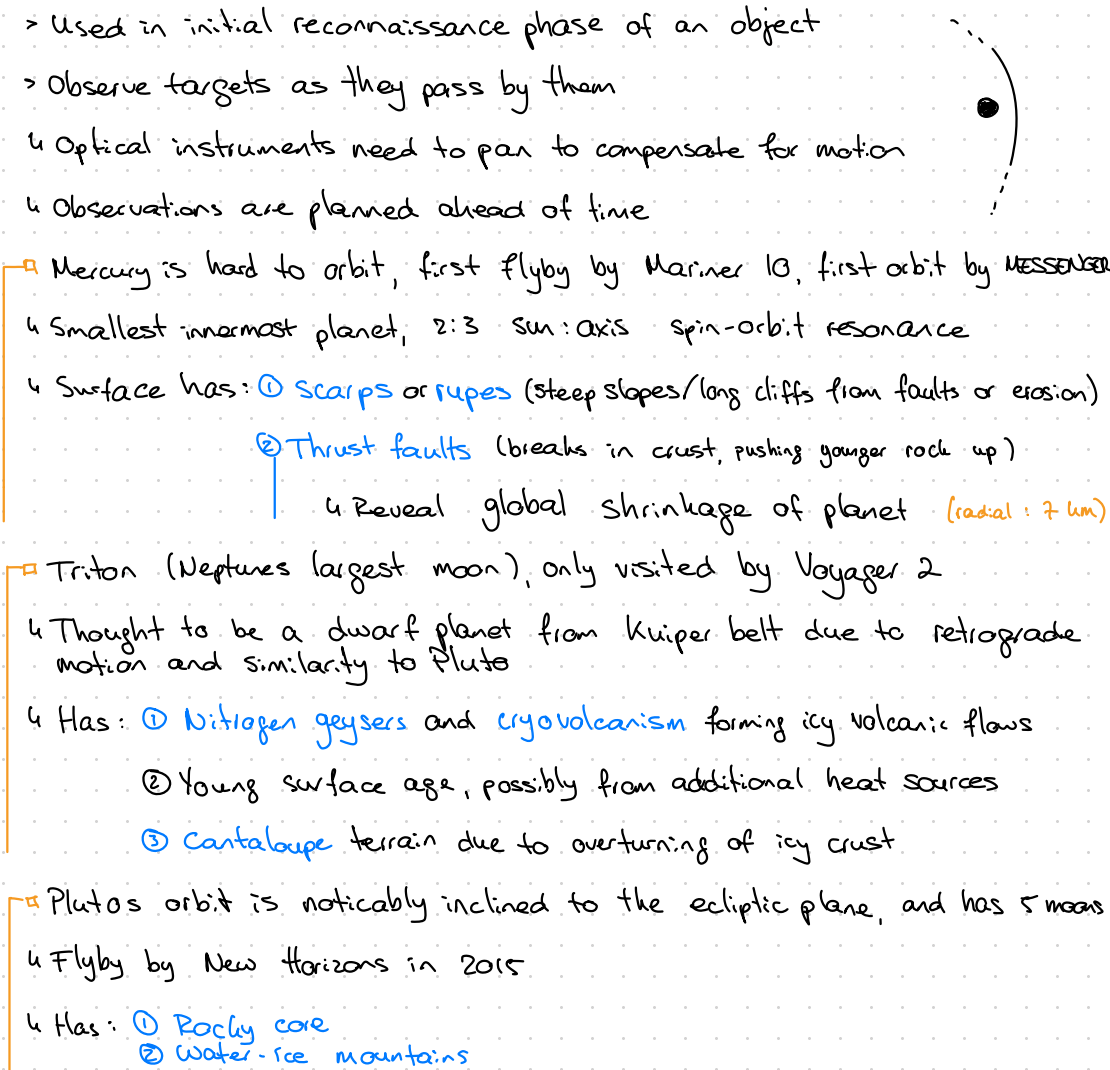 > Used in initial reconnaissance phase of an object
> Observe targets as they pass by them
↳ Optical instruments need to pan to compensate for motion
↳ Observations are planned ahead of time
Mercury is hard to orbit, first flyby by Mariner 10, first orbit by MESSENGER
↳ Smallest innermost planet, 2:3 sun:axis spin-orbit resonance
↳ Surface has: ① scarps or rupes (steep slopes/long cliffs from faults or erosion)
② Thrust faults (breaks in crust, pushing younger rock up)
↳ Reveal global shrinkage of planet (radial: 7 km)
Triton (Neptunes largest moon), only visited by Voyager 2
↳ Thought to be a dwarf planet from Kuiper belt due to retrograde
motion and similarity to Pluto
↳ Has: ① Nitrogen geysers and cryovolcanism forming icy volcanic flows
② Young surface age, possibly from additional heat sources
③ Cantaloupe terrain due to overturning of icy crust
Plutos orbit is noticably inclined to the ecliptic plane, and has 5 moons
↳ Flyby by New Horizons in 2015
↳ Has: ① Rocky core
② Water-ice mountains